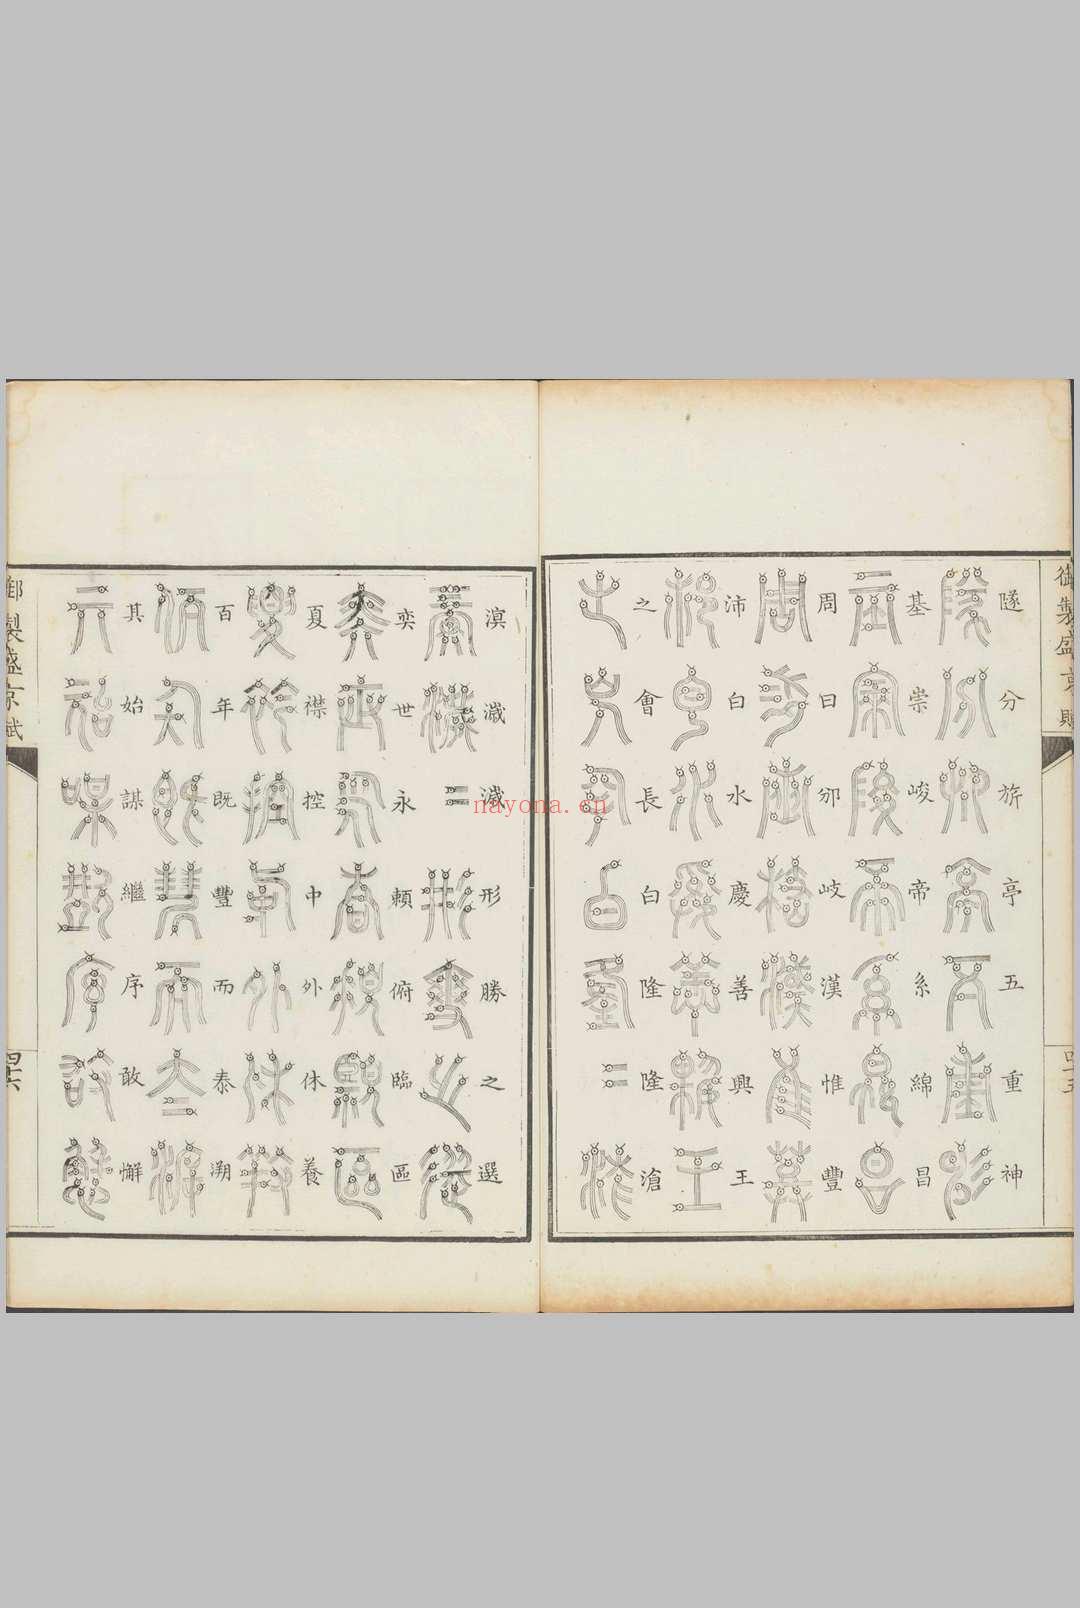 御製盛京賦
四十五
隧分旂亭五重神
基崇峻帝系綿昌
周曰邠岐漢惟豐
沛白水慶善興王
之會長白隆隆滄
溟濊濊形勝之選
奕世永賴俯臨區
夏襟控中外休養
百年既豐而泰溯
其始謀繼序敢懈
御製盛京賦
四十六
nayona.cn